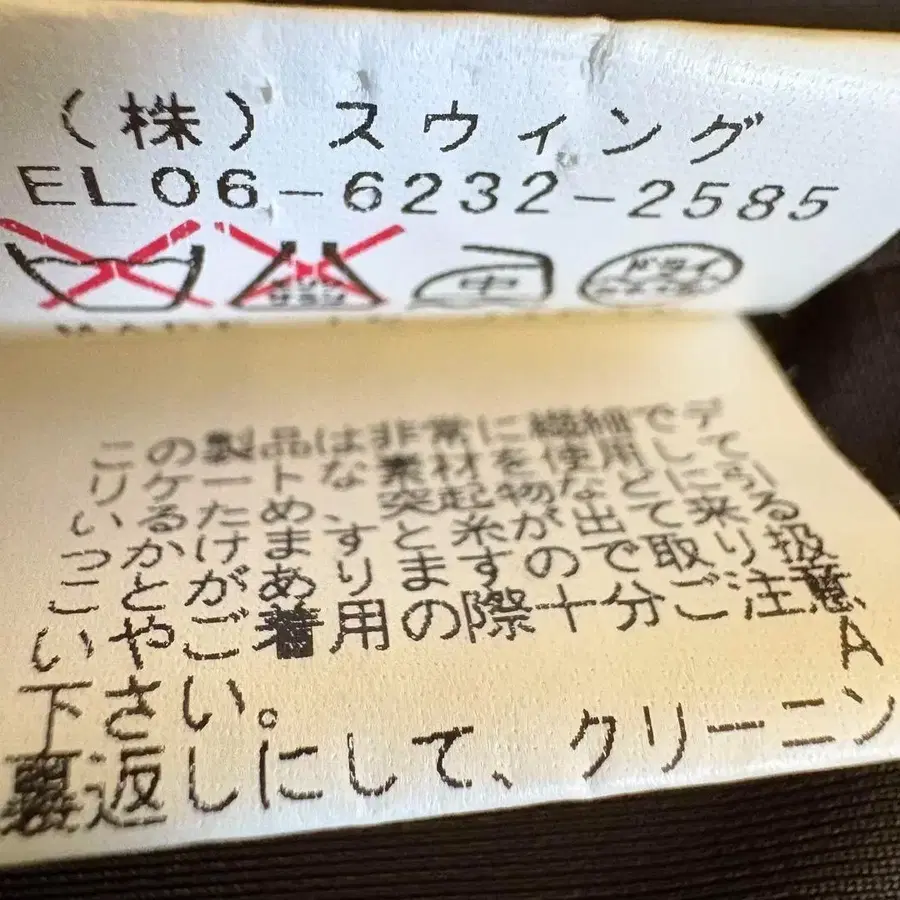 （株）スウィング
EL06-6232-2585
中 ドライ
この製品は非常に繊細でデ
リケートな素材を使用して
いるため突起物などに引
っかけますと糸が出て来る
ことがありますので取り扱
いやご着用の際十分ご注意
A
下さい。
裏返しにして、クリーニン